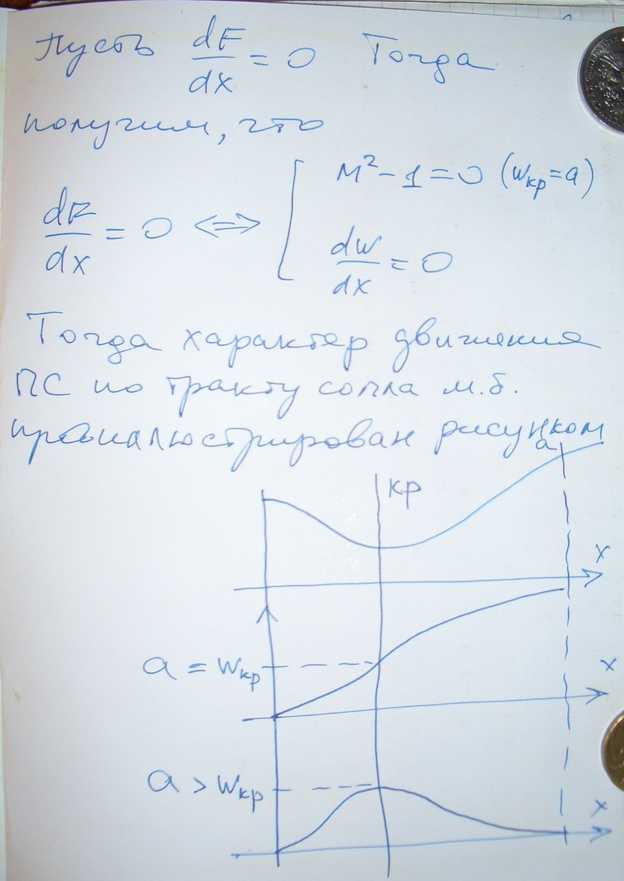 Пусть dF/dx = 0 Тогда
получим, что
dF/dx = 0 <=> [ M²-1=0 (wкр=a)
dw/dx = 0
Тогда характер движения
ПС по тракту сопла м.б.
проиллюстрирован рисунком
a
кр
x
a = wкр
x
a > wкр
x